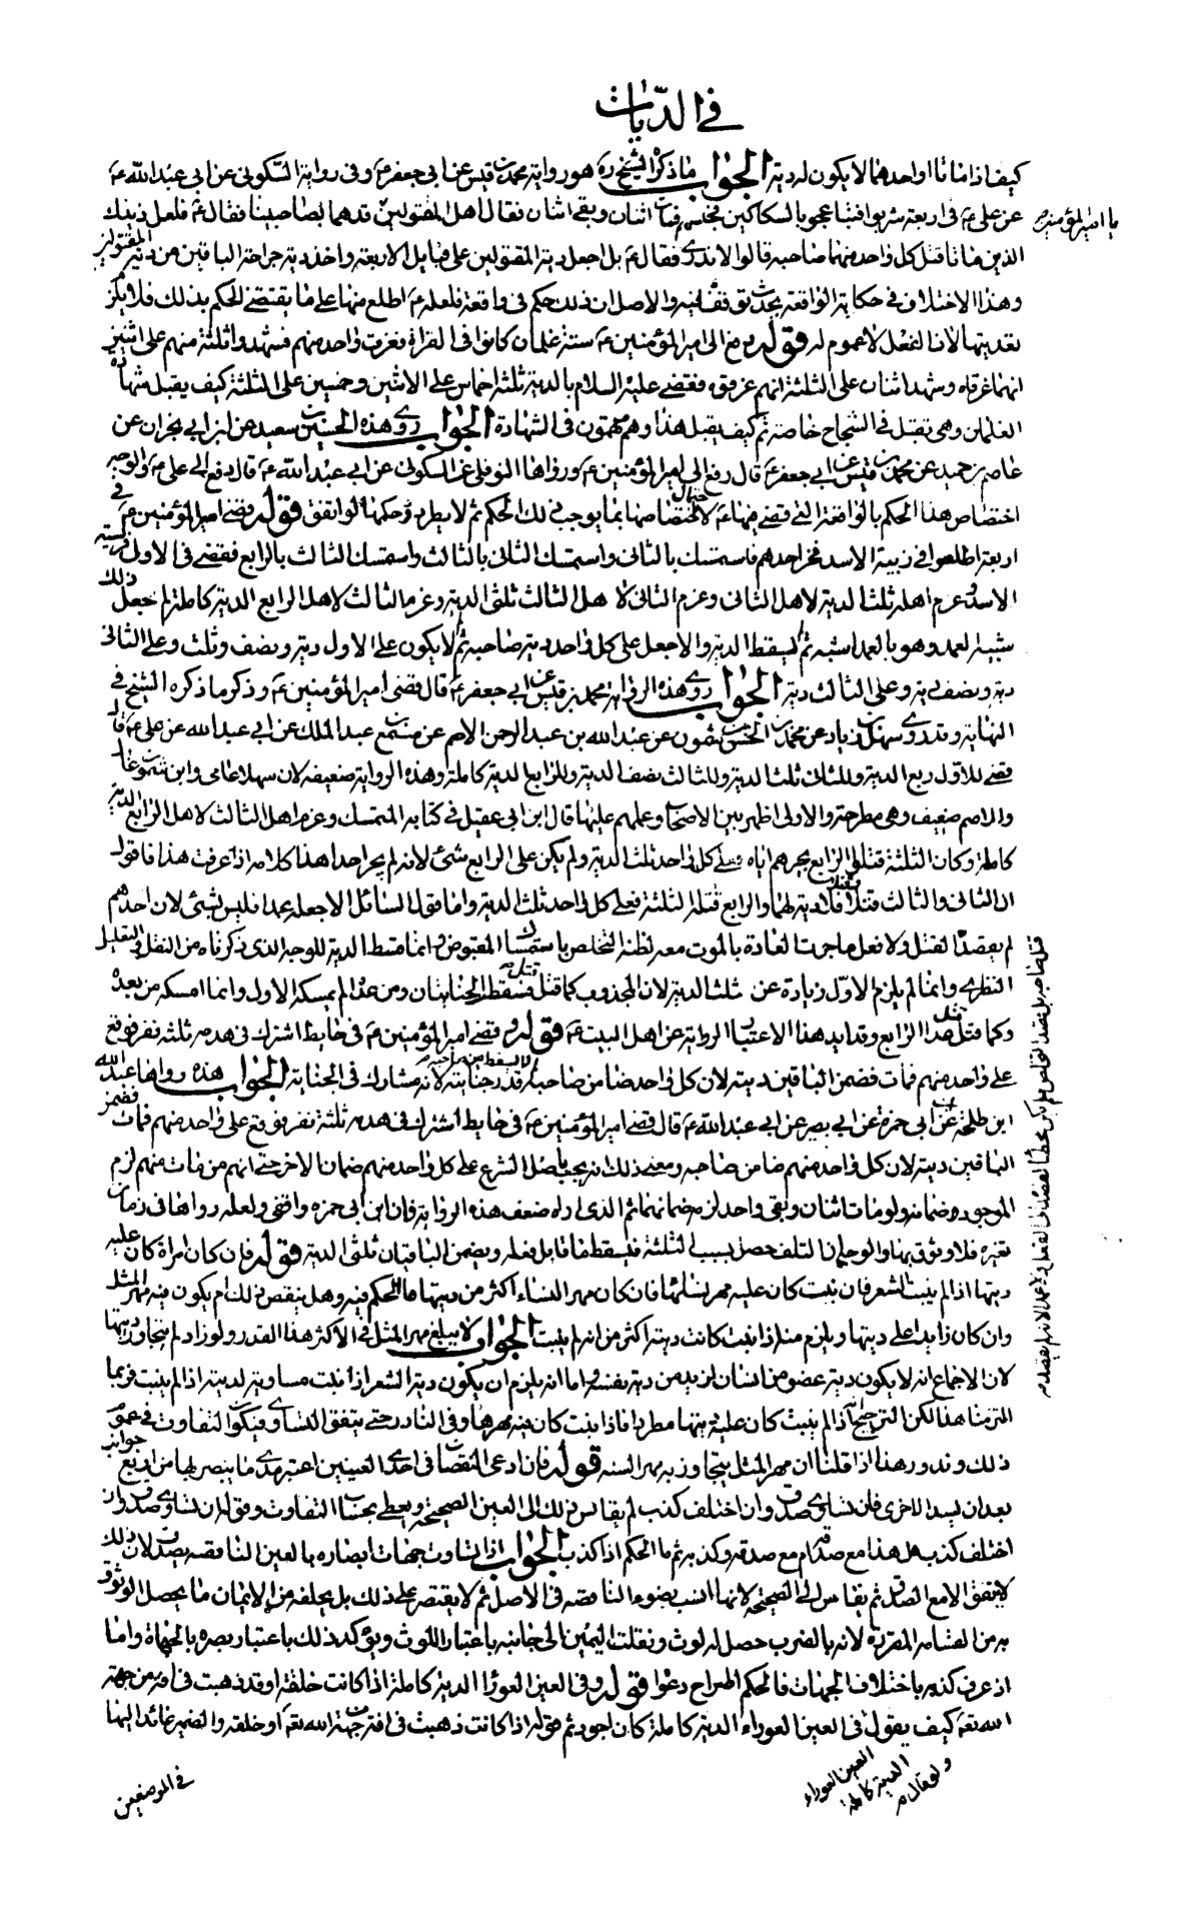 في الديات
كيف اذا ماتا او احدهما لا يكون له دية الجواب ما ذكره الشيخ ره هو رواية محمد بن قيس عن ابي جعفر ع وفي رواية السكوني عن ابي عبد الله ع
عن علي ع في اربعة شربوا فتباعجوا بالسكاكين فمات اثنان وبقي اثنان فقال اهل المقتولين قدهما بصاحبينا فقال ع فلعل ذينك
يا امير المؤمنين
الذين ماتا قتل كل واحد منهما صاحبه قالوا لا ندري فقال ع بل اجعل دية المقتولين على قبايل الاربعة واخذ دية جراحة الباقين من دية المقتولين
وهذا الاختلاف في حكاية الواقعة والاصل ان ذلك حكم في واقعة فلعله ع اطلع منها على ما يقتضي الحكم بذلك فلا يمكن
تعديتها لان الفعل لا عموم له قوله رفع الى امير المؤمنين ع ستة غلمان كانوا في الفراة فغرق واحد منهم فشهدوا ثلثة منهم على اثنين
انهما غرقاه وشهد اثنان على الثلثة انهم غرقوه فقضى عليه السلام بالدية ثلثة اخماس على الاثنين وخمسين على الثلثة كيف يقبل شهادة
الغلمان وهي تقبل في الشجاج خاصة ثم كيف يقبل هذا وهم متهمون في الشهادة الجواب روى هذه الحسين بن سعيد عن ابن ابي نجران عن
عاصم بن حميد عن محمد بن قيس عن ابي جعفر ع قال رفع الى امير المؤمنين ع ورواها النوفلي عن السكوني عن ابي عبد الله ع قال رفع الى علي ع والوجه
اختصاص هذا الحكم بالواقعة التي قضى فيها ع لاحتمال اختصاصها بما يوجب ذلك الحكم ثم لا يطرد حكمها لو اتفق قوله قضى امير المؤمنين ع في
اربعة اطلعوا في زبية الاسد فخر احدهم فاستمسك بالثاني واستمسك الثاني بالثالث واستمسك الثالث بالرابع فقضى في الاول فريسة
الاسد وغرم اهله ثلث الدية لاهل الثاني وغرم الثاني لاهل الثالث ثلثي الدية وغرم الثالث لاهل الرابع الدية كاملة لم جعل ذلك
شبيه العمد وهو بالعمد اشبه ثم لم يسقط الدية والا جعل على كل واحد دية صاحبه ثم لا يكون على الاول دية ونصف وثلث وعلى الثاني
دية ونصف دية وعلى الثالث دية الجواب روى هذه الرواية محمد بن قيس عن ابي جعفر ع قال قضى امير المؤمنين ع وذكر ما ذكره الشيخ في
النهاية وقد روى سهل بن زياد عن محمد بن الحسن بن شمون عن عبد الله بن عبد الرحمن الاصم عن مسمع بن عبد الملك عن ابي عبد الله عن علي ع قال
قضى للاول ربع الدية وللثاني ثلث الدية وللثالث نصف الدية وللرابع الدية كاملة وهذه الرواية ضعيفة لان سهلا عامي وابن شمون غال
والاصم ضعيف فهي مطرحة والاولى اظهر بين الاصحاب وعملهم عليها قال ابن ابي عقيل في كتابه المتمسك وغرم اهل الثالث لاهل الرابع الدية
كاملة وكان الثلثة قتلوا الرابع بجرهم اياه فعلى كل واحد ثلث الدية ولم يكن على الرابع شئ لانه لم يجر احدا هذا كلامه اذا عرفت هذا فاقول
ان الثاني والثالث قتلا فلا دية لهما والرابع قتله الثلثة فعلى كل واحد ثلث الدية واما قول السائل الا جعله عمدا فليس بشئ لان احدهم
لم يقصد القتل ولا فعل ما جرت العادة بالموت معه لظنه التخلص باستمساك المقبوض وانما قسط الدية للوجه الذي ذكرناه من النقل
النظري وانما لم يلزم الاول زيادة عن ثلث الدية لان المجذوب كما قتل قتل فسقط الجنايتان ومن عداه لم يمسكه الاول وانما امسكه من بعده
وكما قتل هذا الرابع وقد ايد هذا الاعتبار الرواية عن اهل البيت ع قوله وقضى امير المؤمنين ع في حايط اشترك في هدمه ثلثة نفر فوقع
على واحد منهم فمات فضمن الباقين ديته لان كل واحد ضامن صاحبه قدر جنايته لانه مشارك في الجناية الجواب هذه رواها عبد الله
ابن طلحة عن ابي حمزة عن ابي بصير عن ابي عبد الله ع قال قضى امير المؤمنين ع في حايط اشترك في هدمه ثلثة نفر فوقع على واحد منهم فمات فضمن
الباقين ديته لان كل واحد منهم ضامن صاحبه ومعنى ذلك انه يجب باصل الشرع على كل واحد منهم ضمان الاخر حتى انهم من مات منهم لزم
الموجود ضمانه ولو مات اثنان وبقي واحد لزمه ضمانهما ثم الذي اراه ضعف هذه الرواية فان ابن ابي حمزه واقفي ولعله رواها في زمان
تغيره فلا وثوق بها والوجه ان التلف حصل بسبب الثلثة فيسقط ما قابل فعله ويضمن الباقيان ثلثي الدية قوله فان كان امراة كان عليه
ديتها اذا لم ينبت الشعر فان نبت كان عليه مهر نسائها فان كان مهر النساء اكثر من ديتها ما الحكم فيه وهل ينقص ذلك ام يكون فيه مهر المثل
وان كان زايدا على ديتها ويلزم منه اذا نبت كانت ديته اكثر من انه لم ينبت الجواب لا يبلغ مهر المثل في الاكثر هذا القدر ولو زاد لم يتجاوز ديتها
لان الاجماع انه لا يكون دية عضو من انسان ازيد من دية نفسه واما انه يلزم ان يكون دية الشعر اذا نبت مساوية لديته اذا لم ينبت فربما
التزمنا هذا لكن الترجيح اذا لم ينبت كان عليه ديتها مطردا فاذا نبت كان فيه مهرها وفي النادر حتى يتفق التساوي فيكون التفاوت في عموم
ذلك وندوره هذا اذا قلنا ان مهر المثل يتجاوز به مهر السنة قوله فان ادعى النقصان في احدى العينين اعتبر مدى ما يبصر بها من اربع جوانب
بعد ان تسد الاخرى فان تساوى صدق وان اختلف كذب ثم يقاس ذلك الى العين الصحيحة ويعطى بحساب التفاوت وقوله ان تساوى صدق وان
اختلف كذب هل هذا مع صدقه ام مع صدقه وكذبه ثم ما الحكم اذا كذب الجواب اذا تساوت جهات ابصاره بالعين الناقصة يصدق لان ذلك
لا يتفق الا مع الصدق ثم يقاس الى الصحيحة لانها انسب بضوء الناقصة في الاصل ثم لا يقتصر على ذلك بل يحلفه من الايمان ما يحصل الوثوق
به من القسامة المقررة لانه بالضرب حصل له لوث ونقلت اليمين الى جانبه باعتبار اللوث ويؤكد ذلك باعتبار بصره بالجهات واما
اذ عرف كذبه باختلاف الجهات فالحكم اطراح دعواه قوله وفي العين العورا الدية كاملة اذا كانت خلقة او قد ذهبت في افة من جهة
الله تع كيف يقول في العين العوراء الدية كاملة كان اجود ثم قوله اذا كانت ذهبت في افة من جهة الله تع او خلقة والضمير عائد اليها
ولو قال م
الدية كاملة
العين العوراء
في الموضعين